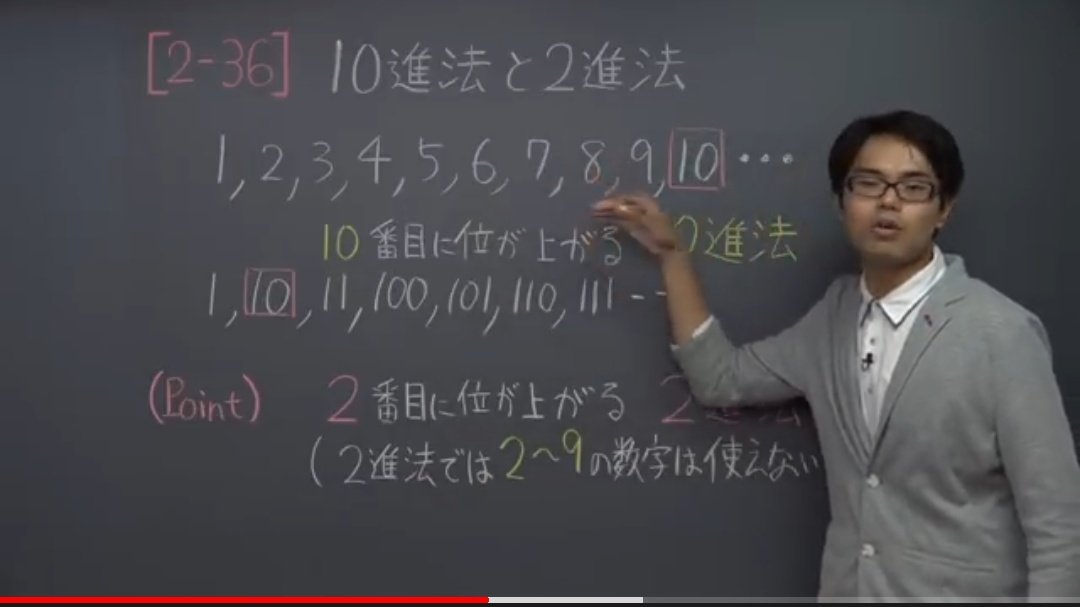 [2-36] 10進法と2進法
1, 2, 3, 4, 5, 6, 7, 8, 9, 10 …
10番目に位が上がる 進法
1, 10, 11, 100, 101, 110, 111 --
(Point) 2番目に位が上がる 2進法
(2進法では2~9の数字は使えない